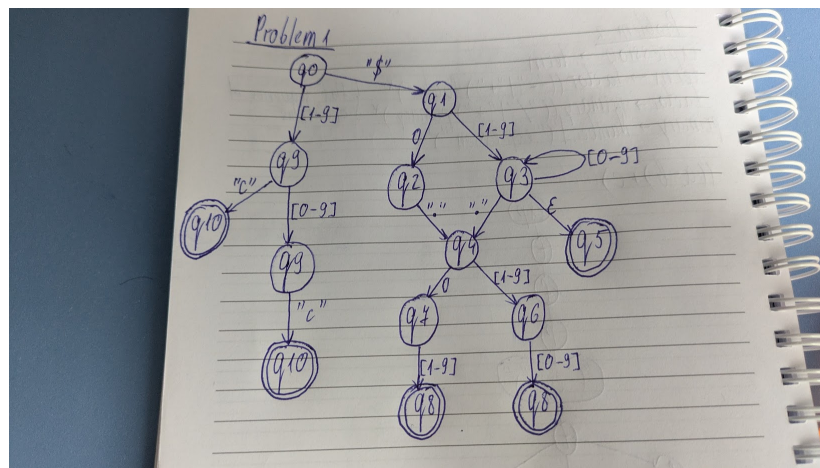 Problem 1
q0
"$"
q1
[1-9]
0
[1-9]
q9
q2
q3
[0-9]
"c"
[0-9]
"."
"."
ε
q10
q4
q5
q9
0
[1-9]
"c"
q7
q6
q10
[1-9]
[0-9]
q8
q8